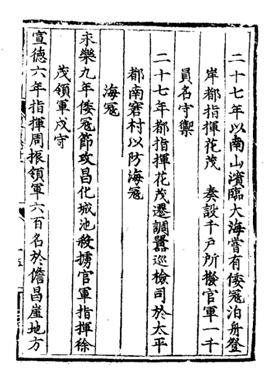 二十七年以南山濱臨大海嘗有倭冦泊舟登
岸都指揮花茂 奏設千户所撥官軍一千
員名守禦
二十七年都指揮花茂遷調蠶巡檢司於太平
都南窖村以防海冦
海冦
永樂九年倭冦節攻昌化城池殺擄官軍指揮徐
茂領軍戍守
宣德六年指揮周振領軍六百名於儋昌崖地方